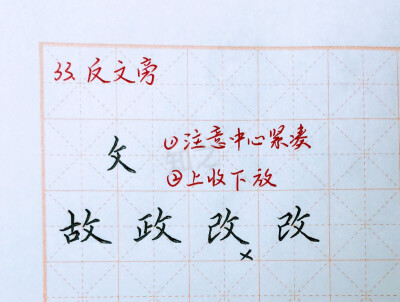 33.反文旁
攵 ①注意中心紧凑
②上收下放
故政改×改